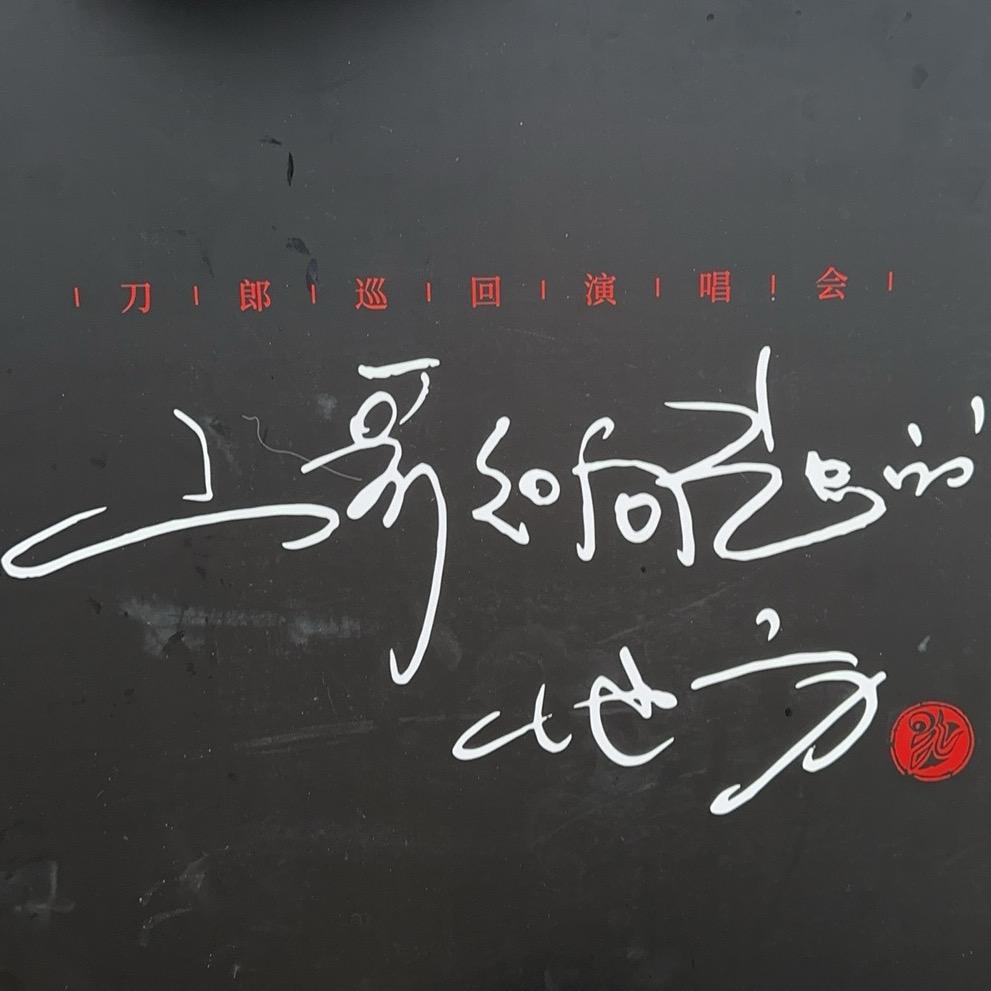 刀郎巡回演唱会
山歌响起的
地方